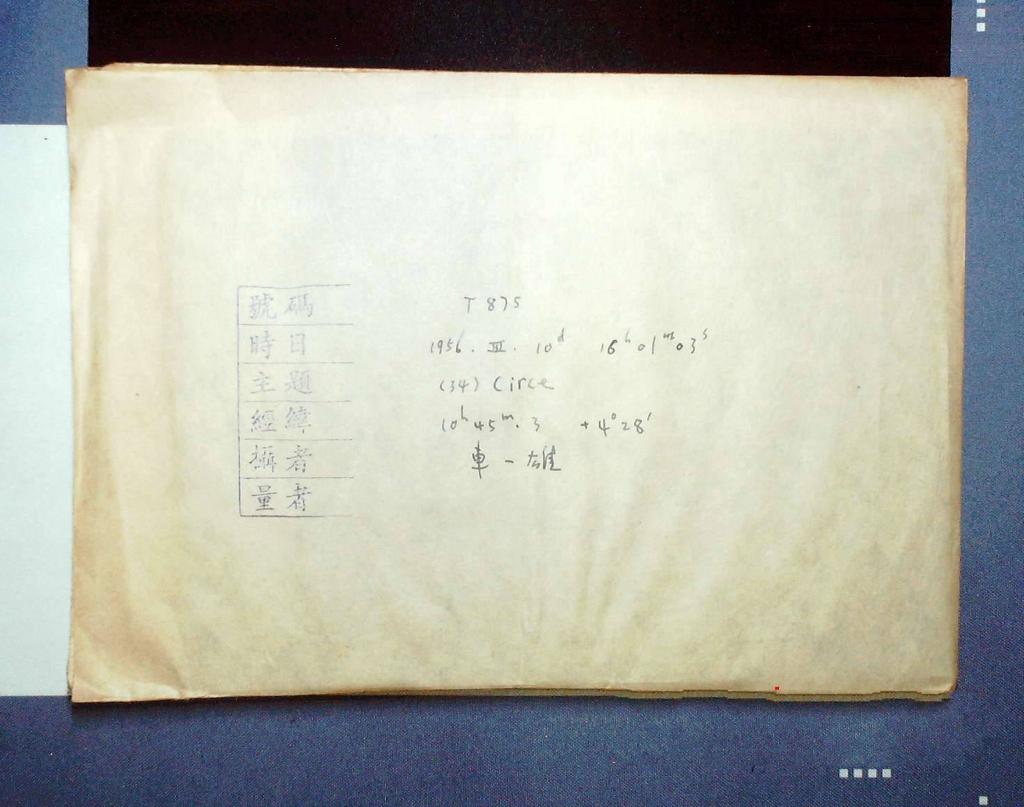 號碼 T 875
時日 1956. III. 10ᵈ 16ʰ01ᵐ03ˢ
主題 (34) Circe
經緯 10ʰ45ᵐ.3 +4°28′
攝者 車一雄
量者